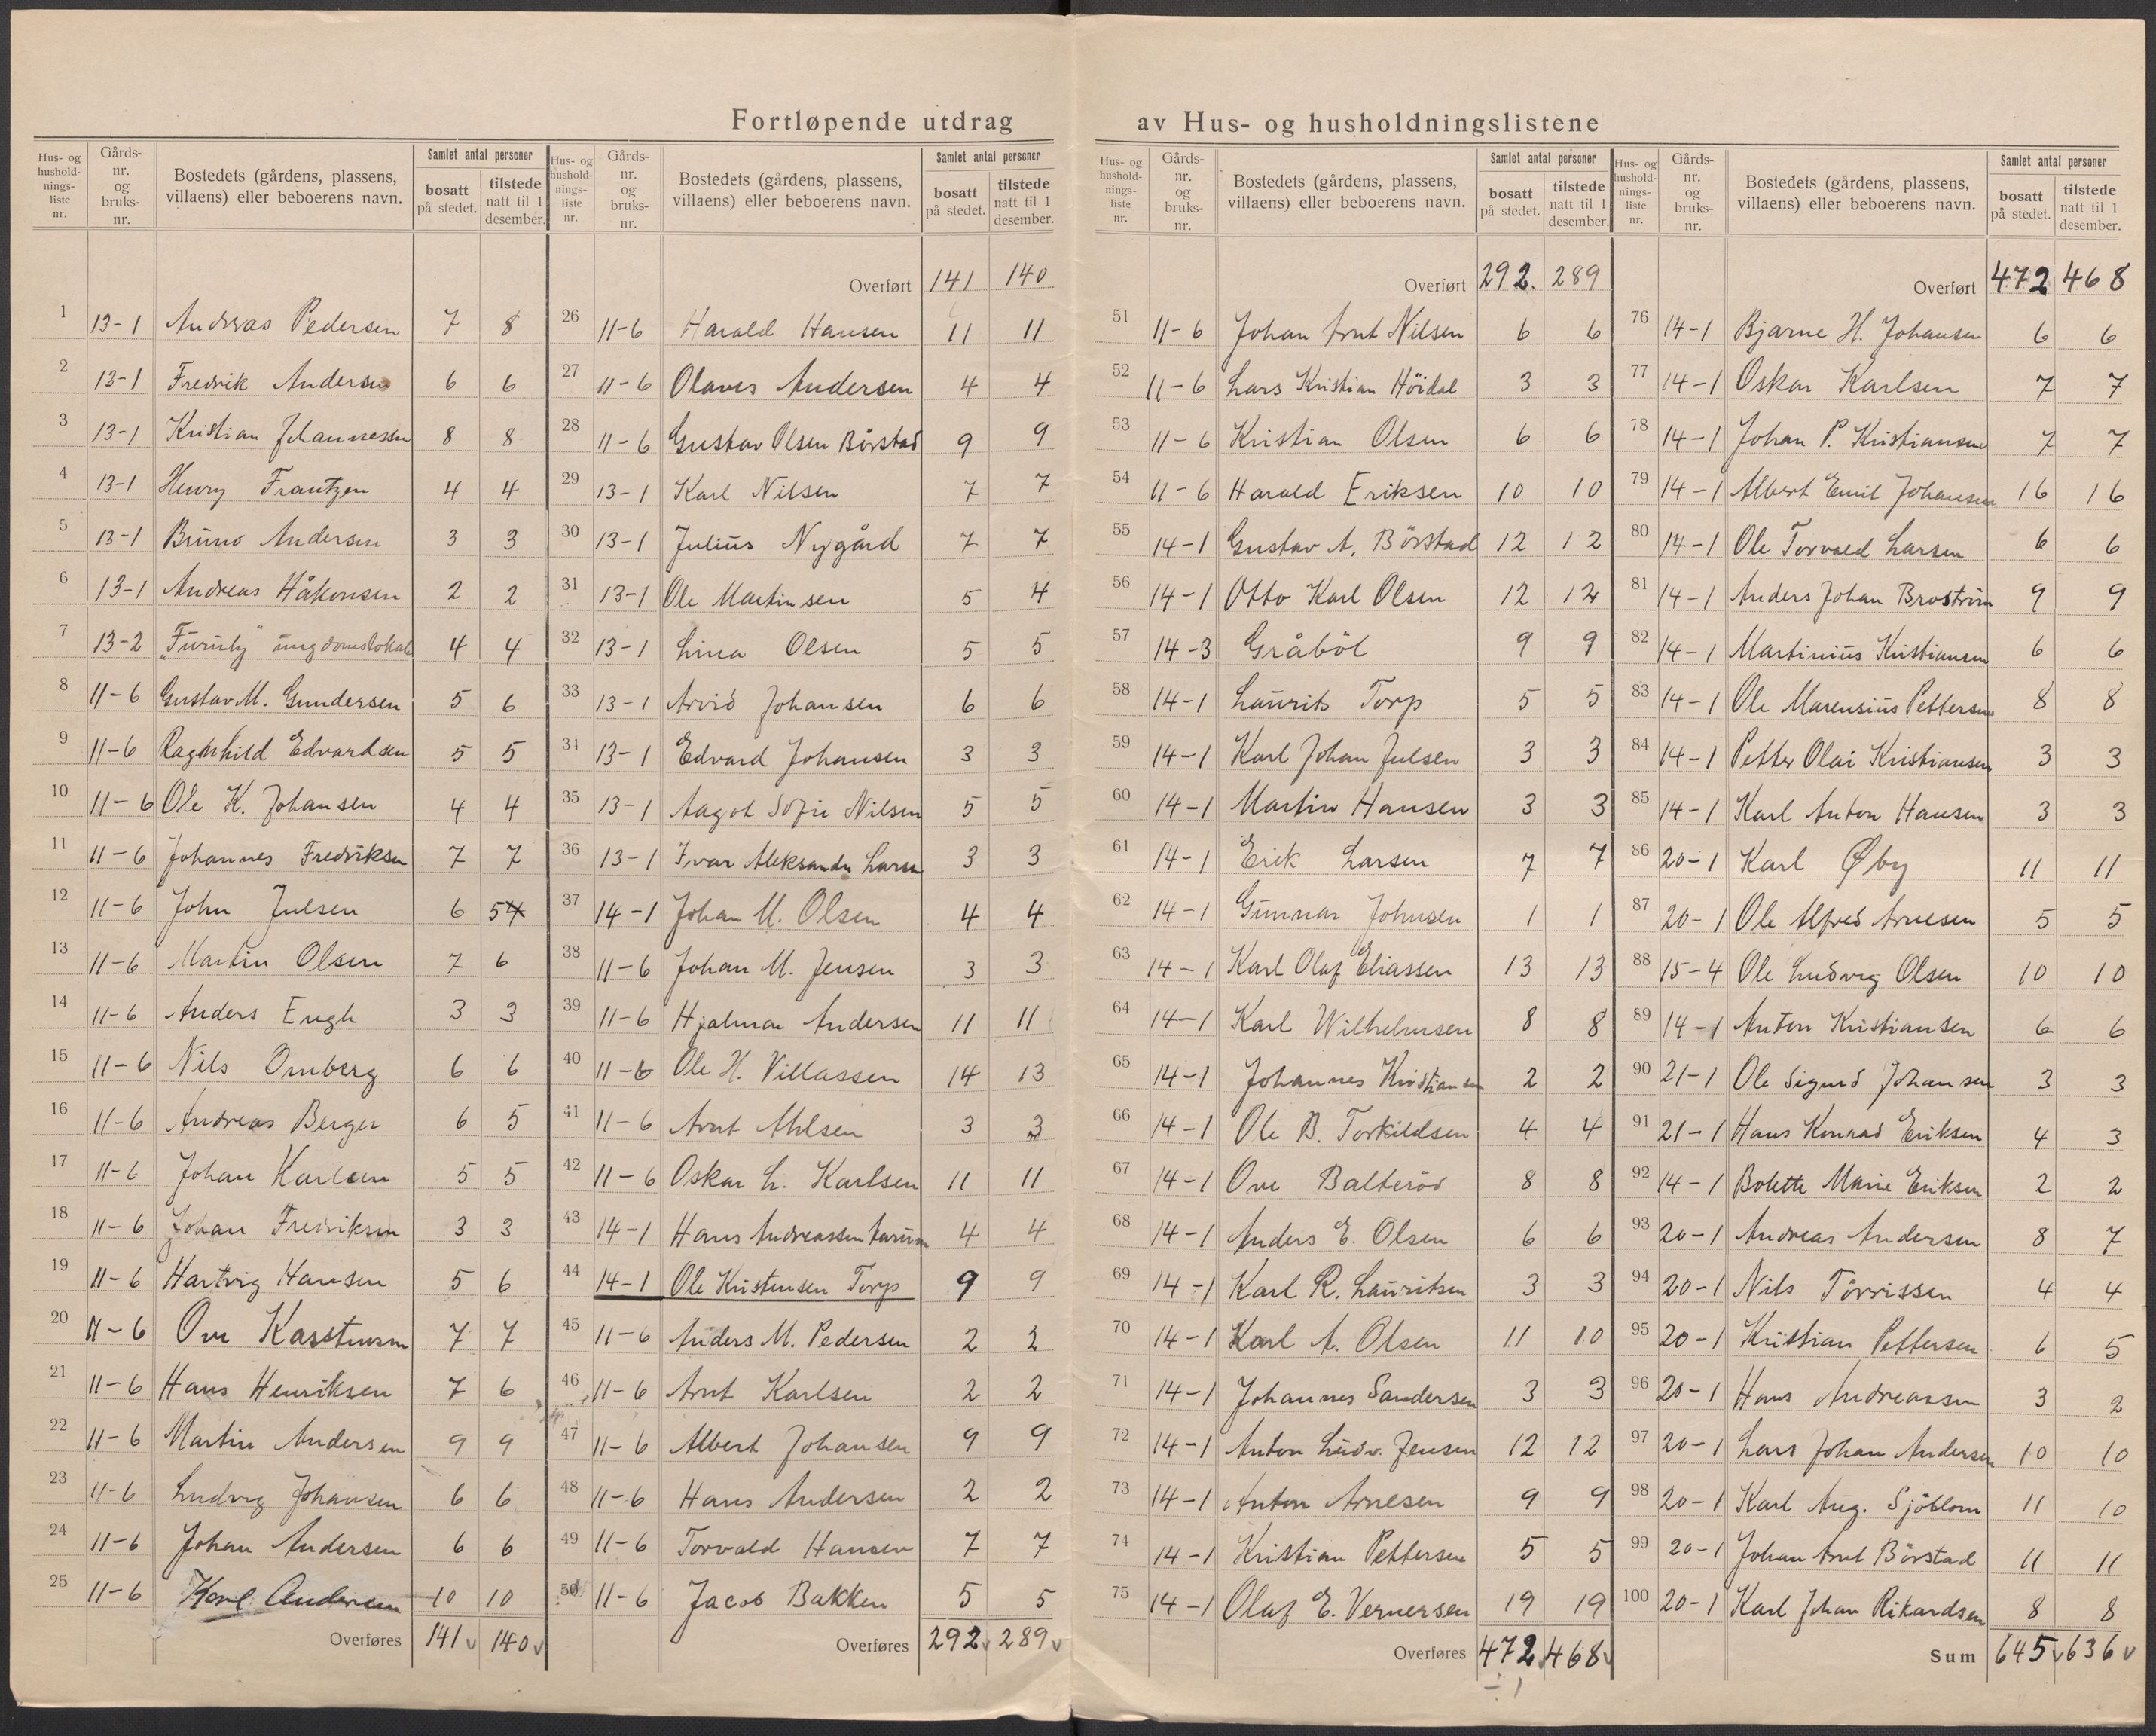 Fortløpende utdrag av Hus- og husholdningslistene
Hus- og hushold- nings- liste nr. | Gårds- nr. og bruks- nr. | Bostedets (gårdens, plassens, villaens) eller beboerens navn. | Samlet antal personer bosatt på stedet. | tilstede natt til 1 desember.
1 13-1 Andreas Pedersen 7 8
2 13-1 Fredrik Andersen 6 6
3 13-1 Kristian Johannessen 8 8
4 13-1 Henry Frantzen 4 4
5 13-1 Bruno Andersen 3 3
6 13-1 Andreas Håkonsen 2 2
7 13-2 "Furuly" ungdomslokale 4 4
8 11-6 Gustav M. Gundersen 5 6
9 11-6 Ragnhild Edvardsen 5 5
10 11-6 Ole K. Johansen 4 4
11 11-6 Johannes Fredriksen 7 7
12 11-6 John Julsen 6 5
13 11-6 Martin Olsen 7 6
14 11-6 Anders Engh 3 3
15 11-6 Nils Omberg 6 6
16 11-6 Andreas Berger 6 5
17 11-6 Johan Karlsen 5 5
18 11-6 Johan Fredriksen 3 3
19 11-6 Hartvig Hansen 5 6
20 11-6 Ove 7 7
21 11-6 Hans Henriksen 7 6
22 11-6 Martin Andersen 9 9
23 11-6 Ludvig Johansen 6 6
24 11-6 Johan Andersen 6 6
25 11-6 Karl Andersen 10 10
Overføres 141 140
Hus- og hushold- nings- liste nr. | Gårds- nr. og bruks- nr. | Bostedets (gårdens, plassens, villaens) eller beboerens navn. | Samlet antal personer bosatt på stedet. | tilstede natt til 1 desember.
Overført 141 140
26 11-6 Harald Hansen 11 11
27 11-6 Olaves Andersen 4 4
28 11-6 Gustav Olsen Börstad 9 9
29 13-1 Karl Nilsen 7 7
30 13-1 Julius Nygård 7 7
31 13-1 Ole Martinsen 5 4
32 13-1 Lina Olsen 5 5
33 13-1 Arvid Johansen 6 6
31 13-1 Edvard Johansen 3 3
35 13-1 Aagot Sofie Nilsen 5 5
36 13-1 Ivar Aleksander Larsen 3 3
37 14-1 Johan M. Olsen 4 4
38 11-6 Johan M. Jensen 3 3
39 11-6 Hjalmar Andersen 11 11
40 11-6 Ole H. Villassen 14 13
41 11-6 Arnt Ahlsen 3 3
42 11-6 Oskar L. Karlsen 11 11
43 14-1 Hans Andreassen 4 4
44 14-1 Ole Kristensen Torp 9 9
45 11-6 Anders M. Pedersen 2 2
46 11-6 Arnt Karlsen 2 2
47 11-6 Albert Johansen 9 9
48 11-6 Hans Andersen 2 2
49 11-6 Torvald Hansen 7 7
50 11-6 Jacob Bakken 5 5
Overføres 292 289
Hus- og hushold- nings- liste nr. | Gårds- nr. og bruks- nr. | Bostedets (gårdens, plassens, villaens) eller beboerens navn. | Samlet antal personer bosatt på stedet. | tilstede natt til 1 desember.
Overført 292. 289
51 11-6 Johan Arnt Nilsen 6 6
52 11-6 Lars Kristian Höidal 3 3
53 11-6 Kristian Olsen 6 6
54 11-6 Harald Eriksen 10 10
55 14-1 Gustav A. Börstad 12 12
56 14-1 Otto Karl Olsen 12 12
57 14-3 Gråböl 9 9
58 14-1 Laurits Torp 5 5
59 14-1 Karl Johan Julsen 3 3
60 14-1 Martin Hansen 3 3
61 14-1 Erik Larsen 7 7
62 14-1 Gunnar Johnsen 1 1
63 14-1 Karl Olaf Eliassen 13 13
64 14-1 Karl Wilhelmsen 8 8
65 14-1 Johannes Kristiansen 2 2
66 14-1 Ole B. Torkildsen 4 4
67 14-1 Ove Balteröd 8 8
68 14-1 Anders E. Olsen 6 6
69 14-1 Karl R. Lauritsen 3 3
70 14-1 Karl A. Olsen 11 10
71 14-1 Johannes Sandersen 3 3
72 14-1 Anton Ludv. Jensen 12 12
73 14-1 Anton Arnesen 9 9
74 14-1 Kristian Pettersen 5 5
75 14-1 Olaf E. Vernersen 19 19
Overføres 472 468
÷ 1
Hus- og hushold- nings- liste nr. | Gårds- nr. og bruks- nr. | Bostedets (gårdens, plassens, villaens) eller beboerens navn. | Samlet antal personer bosatt på stedet. | tilstede natt til 1 desember.
Overført 472 468
76 14-1 Bjarne H. Johansen 6 6
77 14-1 Oskar Karlsen 7 7
78 14-1 Johan P. Kristiansen 7 7
79 14-1 Albert Emil Johansen 16 16
80 14-1 Ole Torvald Larsen 6 6
81 14-1 Anders Johan Broström 9 9
82 14-1 Martinius Kristiansen 6 6
83 14-1 Ole Marensius Pettersen 8 8
84 14-1 Petter Olai Kristiansen 3 3
85 14-1 Karl Anton Hansen 3 3
86 20-1 Karl Øby 11 11
87 20-1 Ole Alfred Arnesen 5 5
88 15-4 Ole Ludvig Olsen 10 10
89 14-1 Anton Kristiansen 6 6
90 21-1 Ole Sigurd Johansen 3 3
91 21-1 Hans Konrad Eriksen 4 3
92 14-1 Bolette Marie Eriksen 2 2
93 20-1 Andreas Andersen 8 7
94 20-1 Nils Törrissen 4 4
95 20-1 Kristian Pettersen 6 5
96 20-1 Hans Andreassen 3 2
97 20-1 Lars Johan Andersen 10 10
98 20-1 Karl Aug. Sjöblom 11 10
99 20-1 Johan Arnt Börstad 11 11
100 20-1 Karl Johan Rikardsen 8 8
Sum 645 636